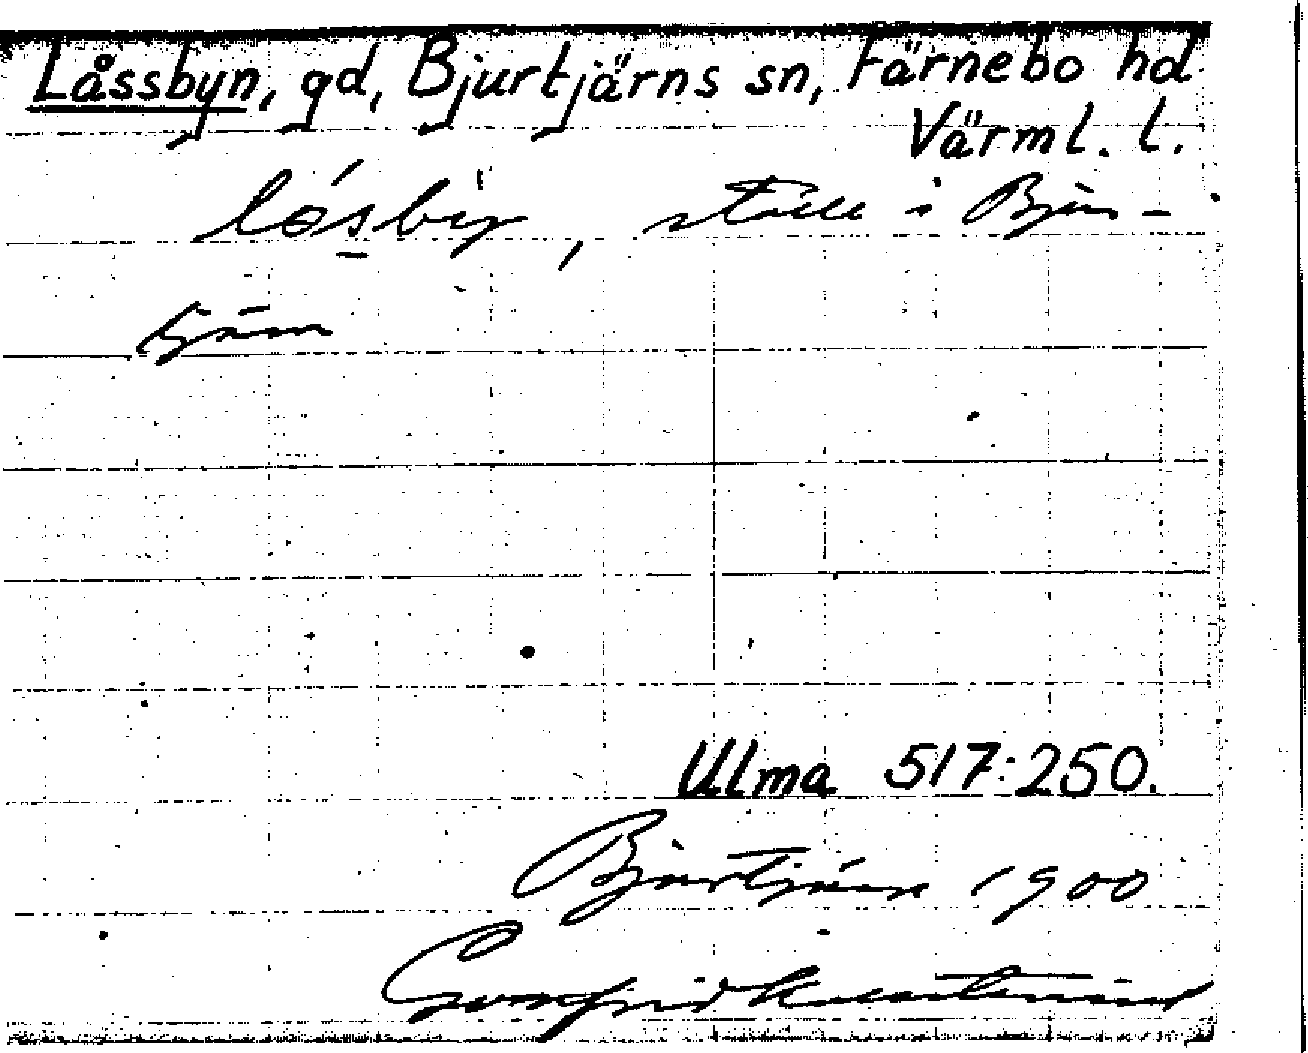 Låssbyn, gd, Bjurtjärns sn, Färnebo hd
Värml. l.
låsbÿn, ställe i Bjur-
tjärn
Ulma 517:250.
Bjurtjärn 1900